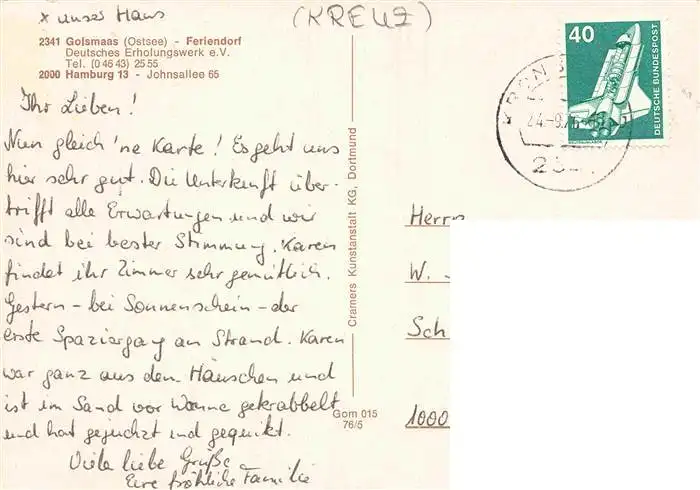 x unser Haus
(KREUZ)
2341 Golsmaas (Ostsee) - Feriendorf
Deutsches Erholungswerk e.V.
Tel. (0 46 43) 25 55
2000 Hamburg 13 - Johnsallee 65
Ihr Lieben!
Nun gleich 'ne Karte! Es geht uns
hier sehr gut. Die Unterkunft über-
trifft alle Erwartungen und wir
sind bei bester Stimmung. Karen
findet ihr Zimmer sehr gemütlich.
Gestern - bei Sonnenschein - der
erste Spaziergang am Strand. Karen
war ganz aus dem Häuschen und
ist im Sand vor Wonne gekrabbelt
und hat gejuchzt und gequikt.
Viele liebe Grüße
Eure fröhliche Familie
Cramers Kunstanstalt KG, Dortmund
Gom 015
76/5
40
DEUTSCHE BUNDESPOST
Herrn
W. -
Sch
1000